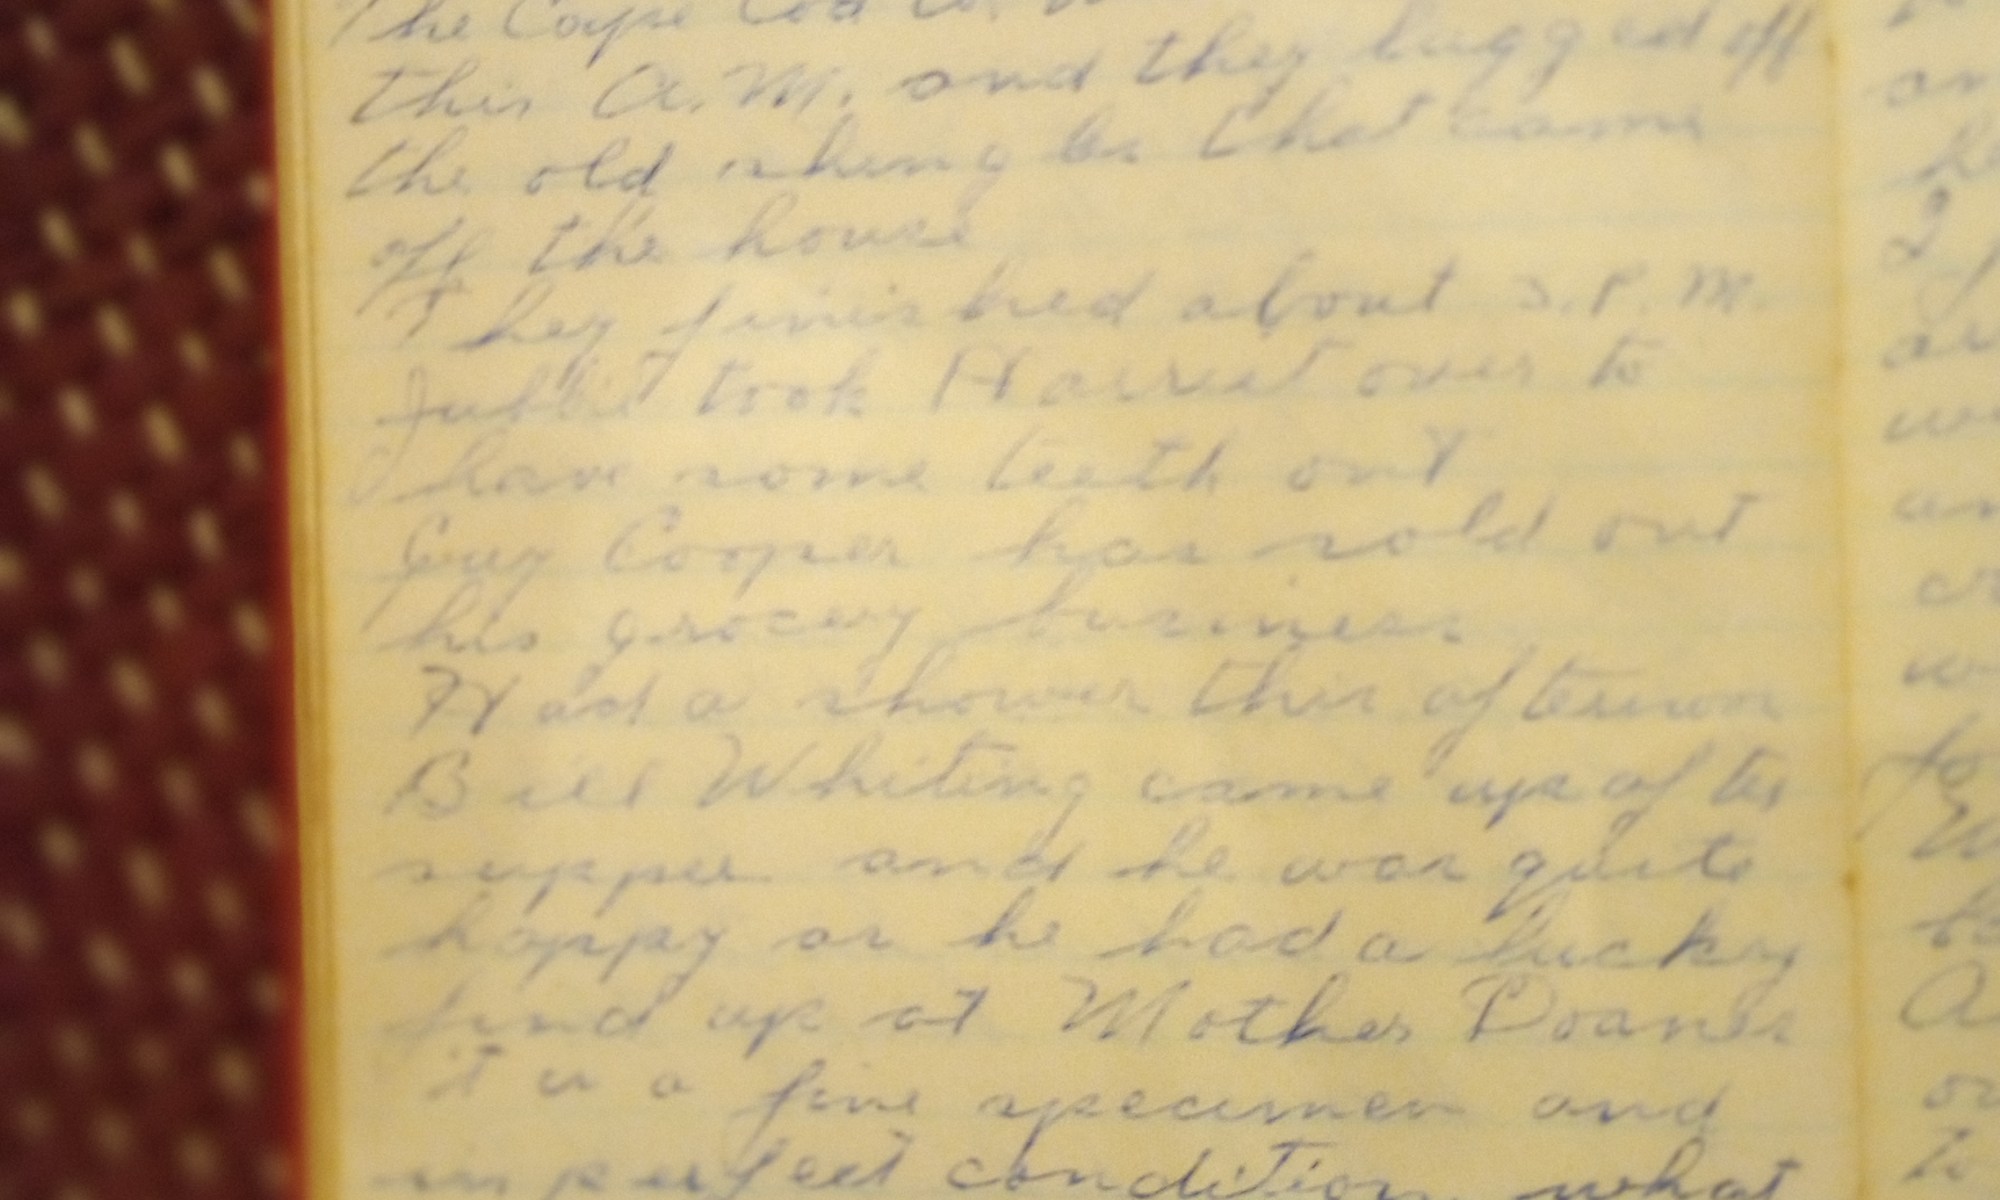 The Cape Cod
this A.M. and they lugged off
the old shingles that came
off the house
They finished about P.M.
took Harriet over to
have some teeth out
Guy Cooper has sold out
his grocery business
Had a shower this afternoon
Bill Whiting came up after
supper and he was quite
happy as he had a lucky
find up at Mother Doanes
it is a fine specimen and
in perfect condition what